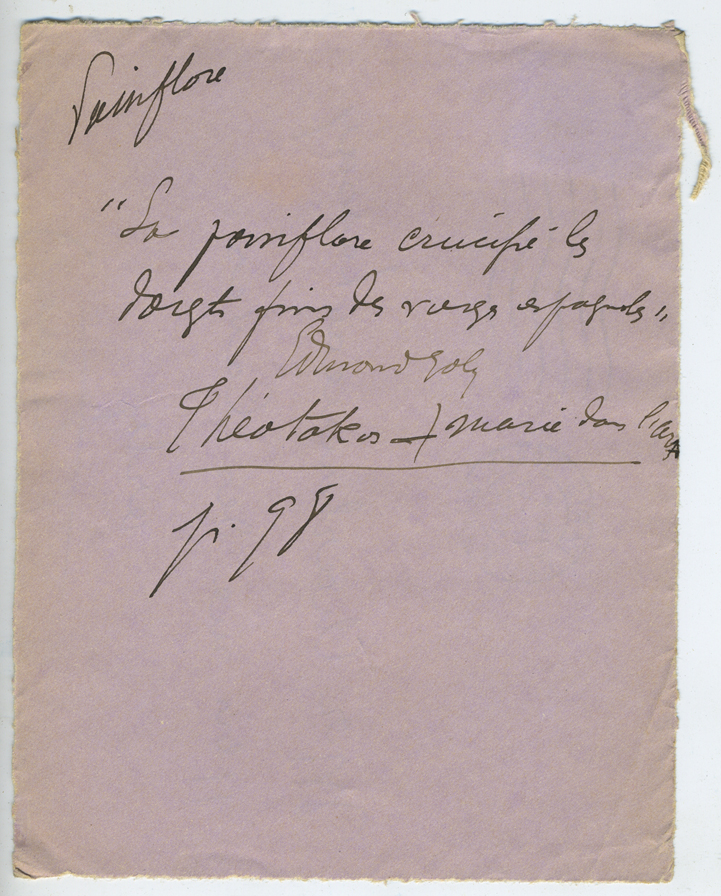 Passiflore
"La passiflore crucifie les
doigts fins des vierges espagnoles"
Edmond Joly
Théotokos – Marie dans l'art
p. 98